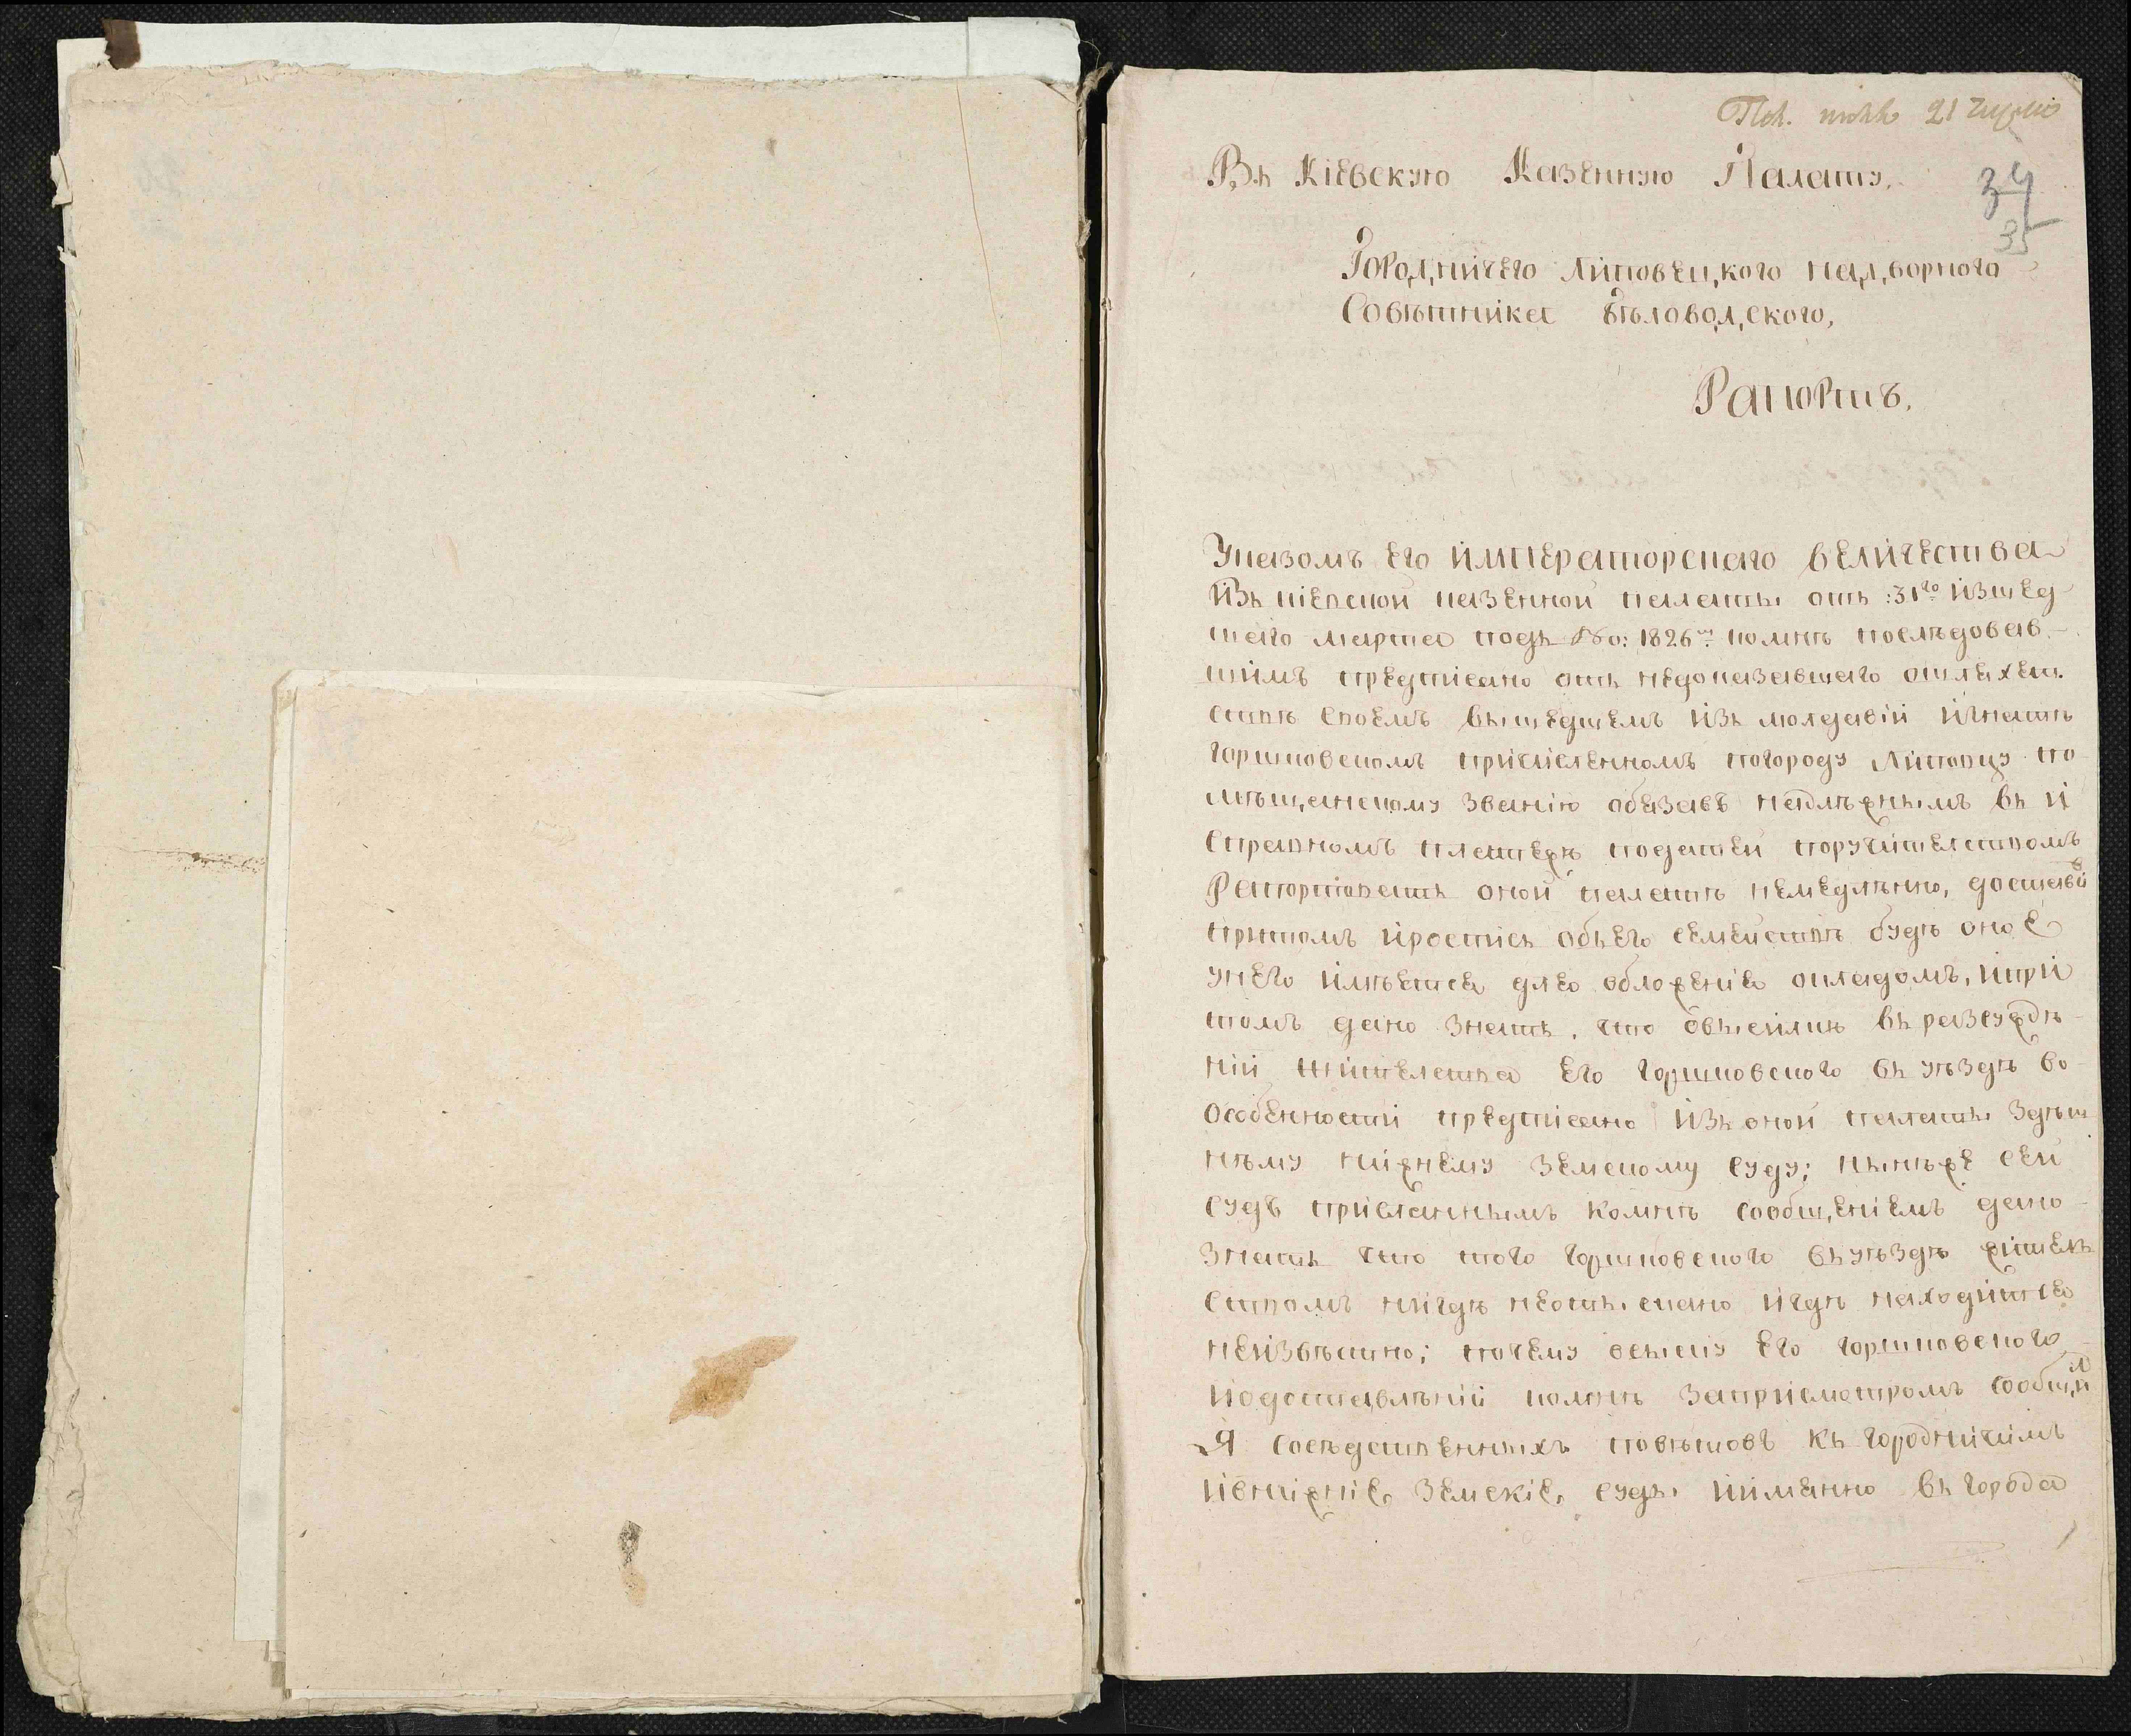 21
Въ Кіевскую Казенную Палату.
34
35
Городничего Липовецкого надворного
Совѣтника Бѣловодского,
Рапортъ.
Указомъ Его императорскаго величества
изъ кіевской казенной палаты отъ :31го изшед
шаго марта подъ No: 1826м комнѣ послѣдовав-
шимъ предписано отъ недоказавшего ошляхет
ствѣ своемъ вышедшемъ изъ молдавіи игнатѣ
горшковскомъ причисленномъ погороду Липовцу по
мѣщанскому званію обязавъ надлѣжнымъ въ и
справномъ платежѣ податей поручителствомъ
Рапортовать оной палатѣ немедлѣнно, доставя
притомъ иросписъ объего семействѣ будѣ оное
унего имѣется для обложенія окладомъ, ипри
томъ дано знать, что обысимъ въ разсуждѣ
ніи жителства его горшковского въ уѣздѣ во
особенности предписано изъ оной палаты здѣш
нѣму нижнему земскому суду; нынѣже сей
судъ присланнымъ комнѣ сообщеніемъ дано
знать что того горшковского въуѣздѣ жител
ствомъ нигдѣ неотыскано игдѣ находится
неизвѣстно; почему осыску его горшковского
идоставлѣніи комнѣ заприсмотромъ сообщил
Я сосѣдственныхъ повѣтовъ къ городничимъ
ивнижніе земскіе суды иимянно въ города